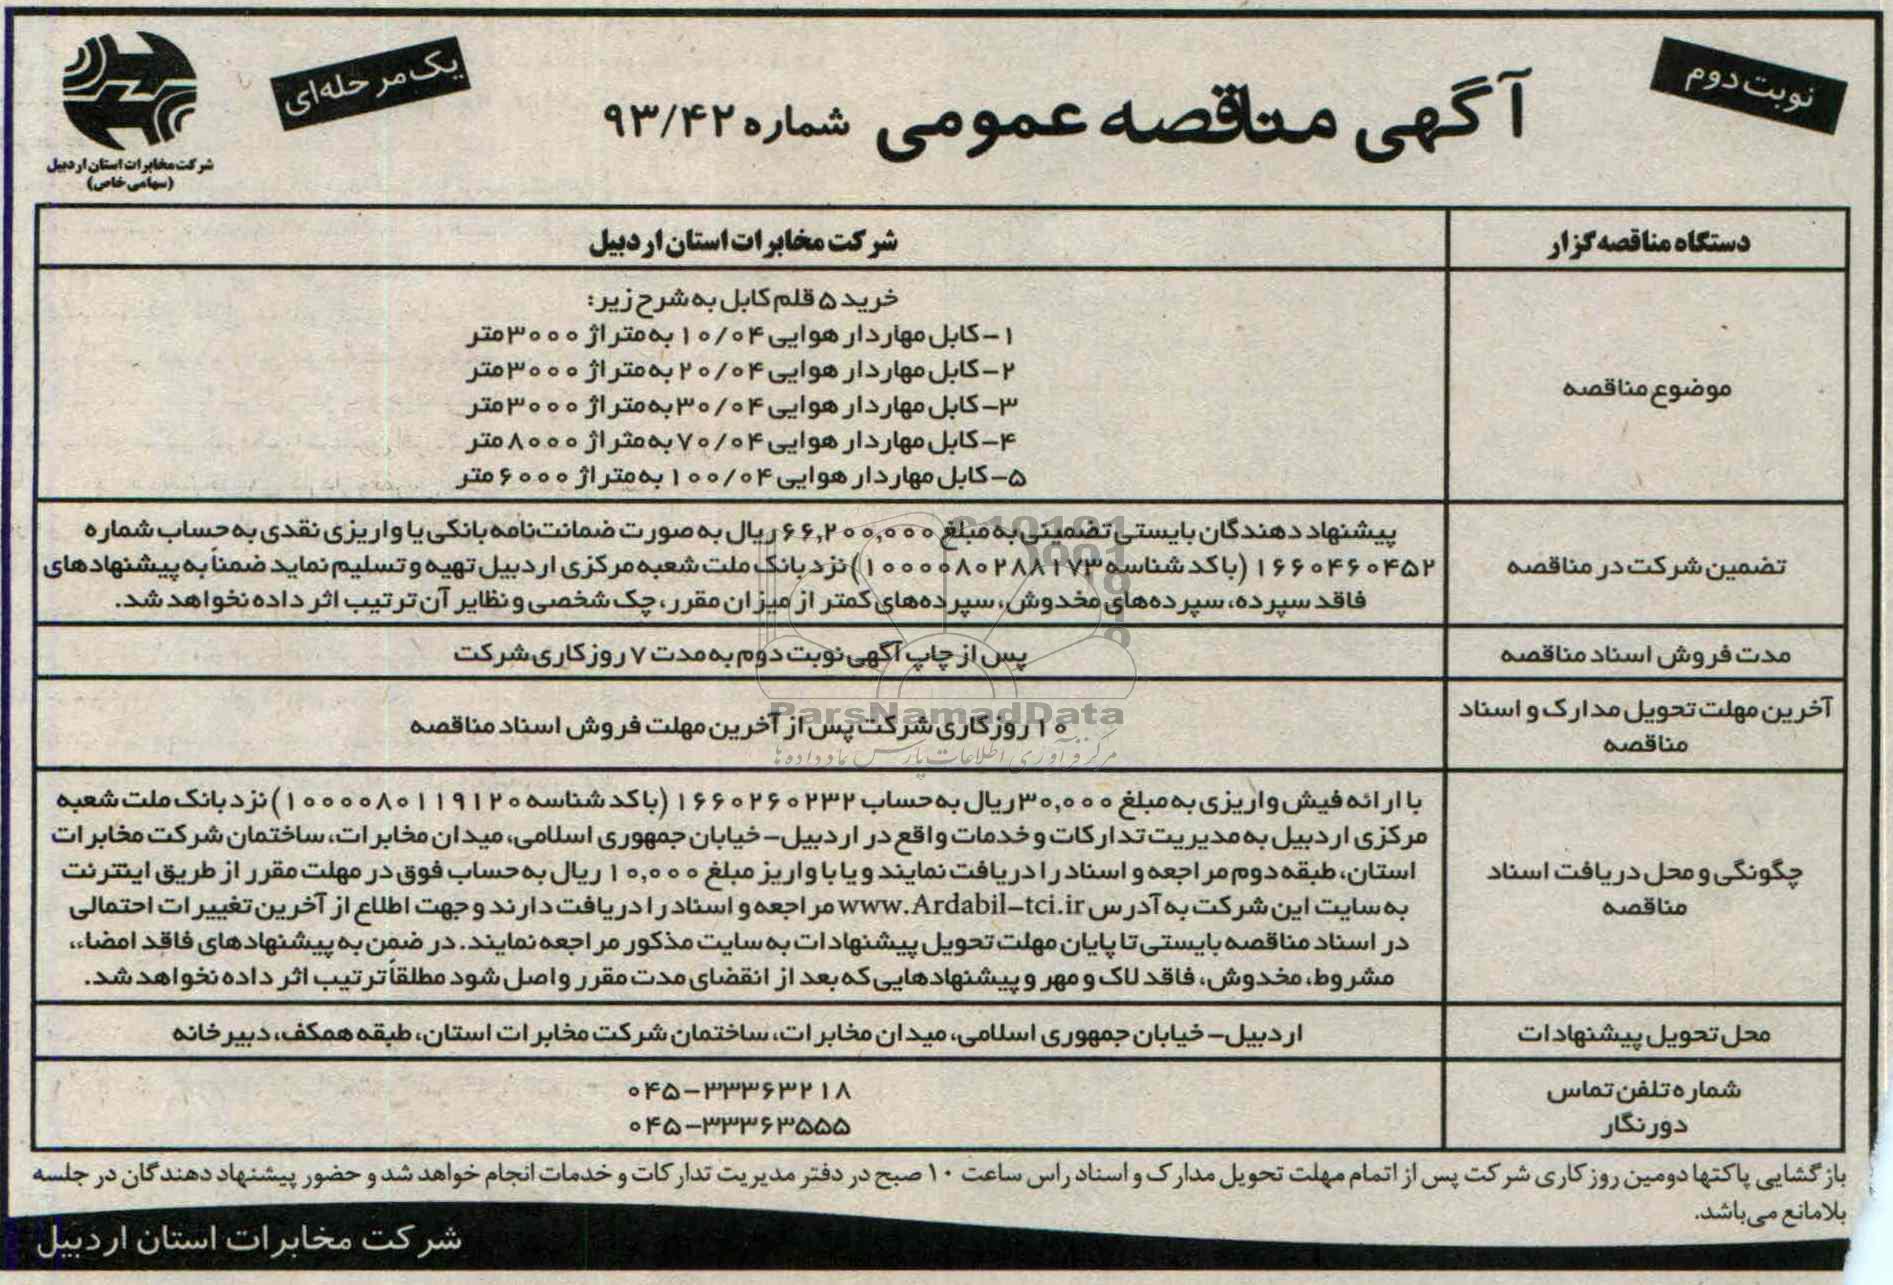 نوبت دوم
آگهی مناقصه عمومی شماره ۹۳/۴۲
یک مرحله‌ای
شرکت مخابرات استان اردبیل
(سهامی خاص)
دستگاه مناقصه گزار
شرکت مخابرات استان اردبیل
موضوع مناقصه
خرید ۵ قلم کابل به شرح زیر:
۱-کابل مهاردار هوایی ۱۰/۰۴ به متراژ ۳۰۰۰ متر
۲-کابل مهاردار هوایی ۲۰/۰۴ به متراژ ۳۰۰۰ متر
۳-کابل مهاردار هوایی ۳۰/۰۴ به متراژ ۳۰۰۰ متر
۴-کابل مهاردار هوایی ۷۰/۰۴ به متراژ ۸۰۰۰ متر
۵-کابل مهاردار هوایی ۱۰۰/۰۴ به متراژ ۶۰۰۰ متر
تضمین شرکت در مناقصه
پیشنهاد دهندگان بایستی تضمینی به مبلغ ۶۶,۲۰۰,۰۰۰ ریال به صورت ضمانت‌نامه بانکی یا واریزی نقدی به حساب شماره
۱۶۶۰۴۶۰۴۵۲ (با کد شناسه ۱۰۰۰۰۸۰۲۸۸۱۷۳) نزد بانک ملت شعبه مرکزی اردبیل تهیه و تسلیم نماید ضمناً به پیشنهادهای
فاقد سپرده، سپرده‌های مخدوش، سپرده‌های کمتر از میزان مقرر، چک شخصی و نظایر آن ترتیب اثر داده نخواهد شد.
مدت فروش اسناد مناقصه
پس از چاپ آگهی نوبت دوم به مدت ۷ روز کاری شرکت
آخرین مهلت تحویل مدارک و اسناد
مناقصه
۱۰ روز کاری شرکت پس از آخرین مهلت فروش اسناد مناقصه
ParsNamadData
مرکز فرآوری اطلاعات پارس نماد داده ها
چگونگی و محل دریافت اسناد
مناقصه
با ارائه فیش واریزی به مبلغ ۳۰,۰۰۰ ریال به حساب ۱۶۶۰۲۶۰۲۳۲ (با کد شناسه ۱۰۰۰۰۸۰۱۱۹۱۲۰) نزد بانک ملت شعبه
مرکزی اردبیل به مدیریت تدارکات و خدمات واقع در اردبیل- خیابان جمهوری اسلامی، میدان مخابرات، ساختمان شرکت مخابرات
استان، طبقه دوم مراجعه و اسناد را دریافت نمایند و یا با واریز مبلغ ۱۰,۰۰۰ ریال به حساب فوق در مهلت مقرر از طریق اینترنت
به سایت این شرکت به آدرس www.Ardabil-tci.ir مراجعه و اسناد را دریافت دارند و جهت اطلاع از آخرین تغییرات احتمالی
در اسناد مناقصه بایستی تا پایان مهلت تحویل پیشنهادات به سایت مذکور مراجعه نمایند. در ضمن به پیشنهادهای فاقد امضاء،
مشروط، مخدوش، فاقد لاک و مهر و پیشنهادهایی که بعد از انقضای مدت مقرر واصل شود مطلقاً ترتیب اثر داده نخواهد شد.
محل تحویل پیشنهادات
اردبیل- خیابان جمهوری اسلامی، میدان مخابرات، ساختمان شرکت مخابرات استان، طبقه همکف، دبیرخانه
شماره تلفن تماس
دورنگار
۰۴۵-۳۳۳۶۳۲۱۸
۰۴۵-۳۳۳۶۳۵۵۵
بازگشایی پاکتها دومین روز کاری شرکت پس از اتمام مهلت تحویل مدارک و اسناد راس ساعت ۱۰ صبح در دفتر مدیریت تدارکات و خدمات انجام خواهد شد و حضور پیشنهاد دهندگان در جلسه
بلامانع می‌باشد.
شرکت مخابرات استان اردبیل